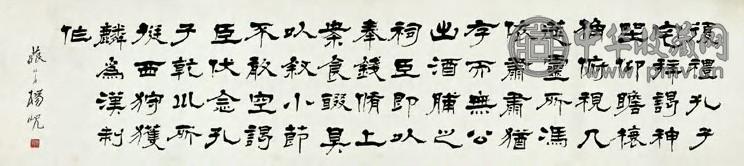 復禮孔子
宅拜謁神
坐仰瞻榱
桷俯視几
筵靈所馮
依肅肅猶
存而無公
出酒脯之
祠臣即以
奉錢脩上
案食醊具
以敘小節
不敢空謁
臣伏念孔
子乾川所
挺西狩獲
麟為漢制
作
藐楊峴
中华收藏网